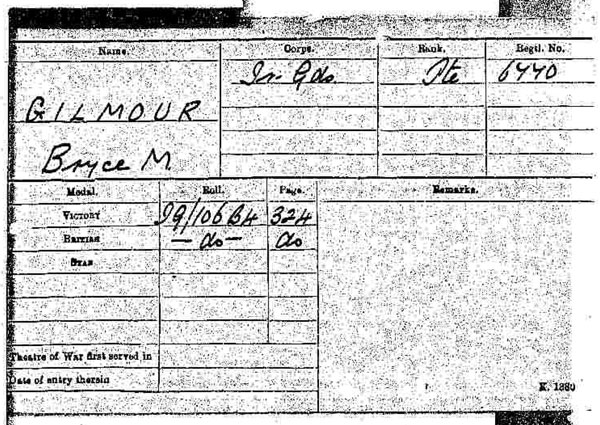 Name. Corps. Rank. Regtl. No.
Ir Gds Pte 6440
GILMOUR
Bryce M
Medal. Roll. Page. Remarks.
VICTORY IG/106 B4 324
BRITISH — do — do
STAR
Theatre of War first served in
Date of entry therein
K. 1380